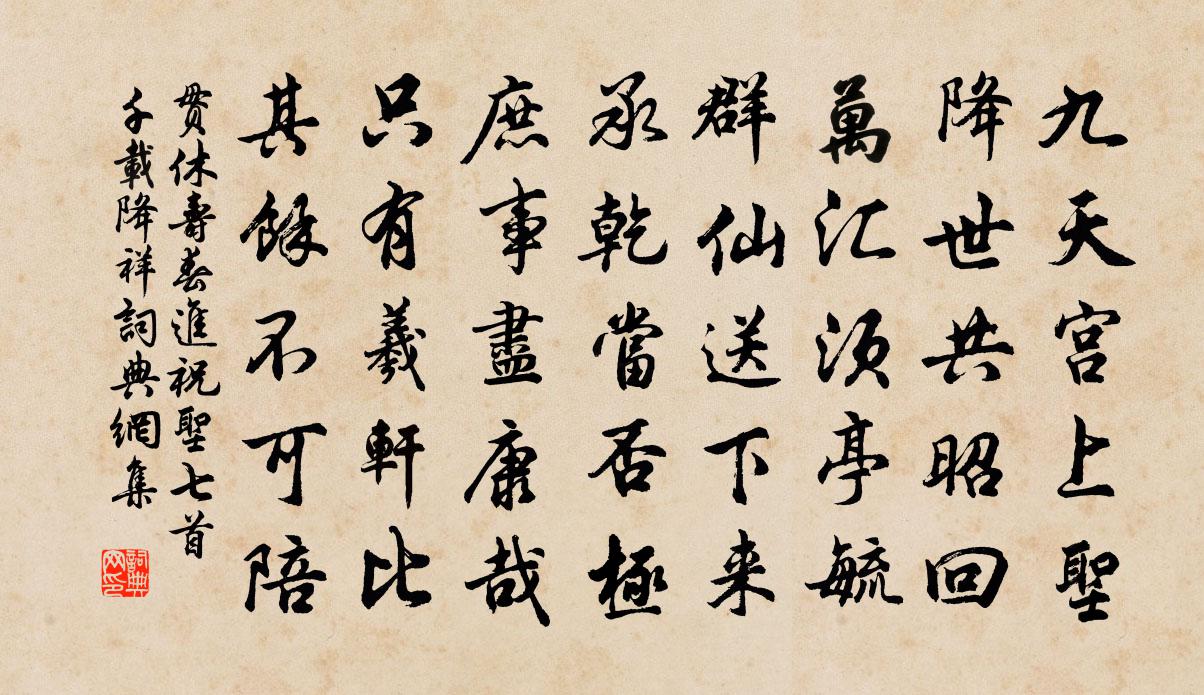 九天宮上聖
降世共昭回
萬汇須亭毓
群仙送下来
承乾當否極
庶事盡康哉
只有羲軒比
其餘不可陪
贯休壽春進祝聖七首
千載降祥詞典網集
詞典网印